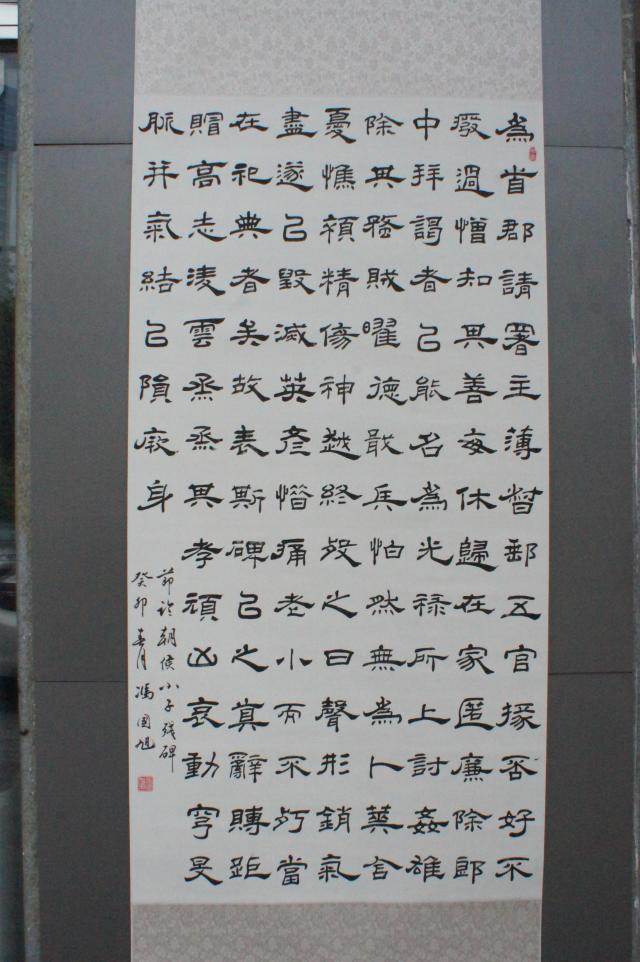 為省郡請署主薄督郵五官掾否好不
癈過憎知其善每休歸在家匿廉除郎
中拜謁者㠯能名為光祿所上討姦雄
除其蝥賊曜德戢兵怕然無為卜葬含
憂憔顇精傷神越終殁之日聲形銷氣
盡遂㠯毀滅英彥憯痛老小而不當
在祀典者矣故表斯碑㠯之真辭賻距
賵高志凌雲烝烝其孝碩凶哀動穹旻
脈并氣結㠯隕厥身
節臨朝侯小子殘碑
癸卯春月馮國旭